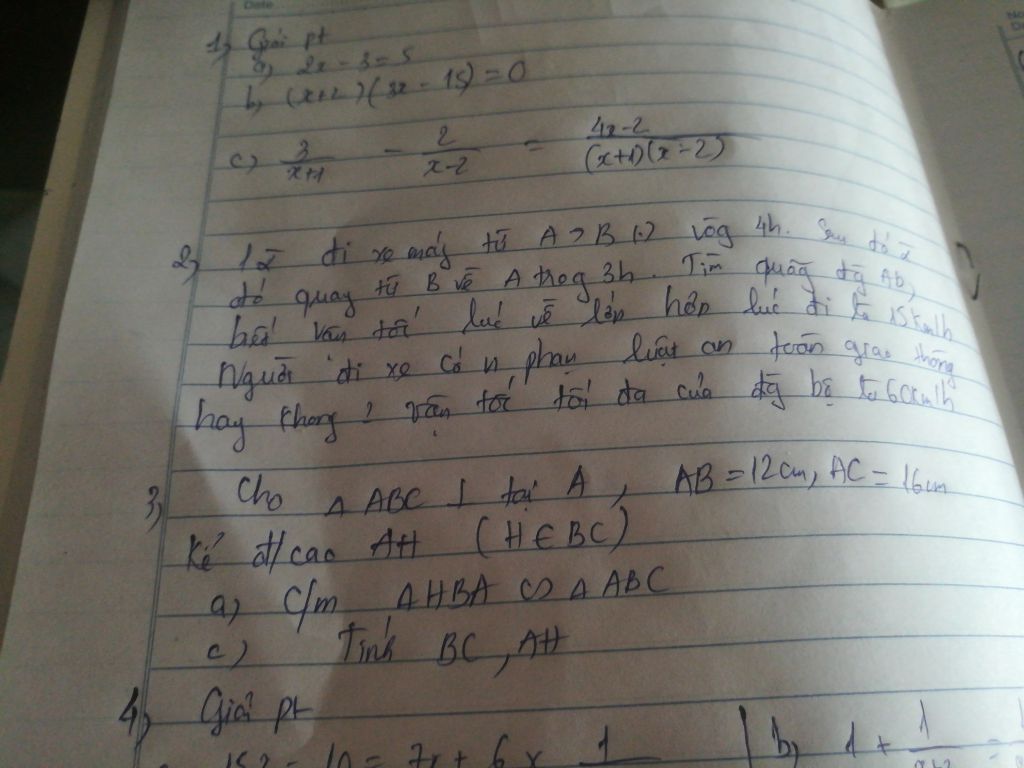 Date
1, Giải pt
a, 2x - 3 = 5
b, (x+2)(3x - 15) = 0
c) 3/(x+1) - 2/(x-2) = (4x-2)/((x+1)(x-2))
2, đi xe máy từ A → B 4h. Sau đó
đó quay từ B về A trog 3h. Tìm quãg đg AB,
biết vận tốc lúc về lớn hơn lúc đi là 15km/h
Người đi xe có phạm luật an toàn giao thông
hay khong? vận tốc tối đa của đg bộ là 60km/h
3, Cho Δ ABC ⊥ tại A, AB = 12cm, AC = 16cm
Kẻ đ/cao AH (H ∈ BC)
a, C/m Δ HBA ∽ Δ ABC
c) Tính BC, AH
4, Giải pt
= 7x + 6 x 1
b, 1 + 1